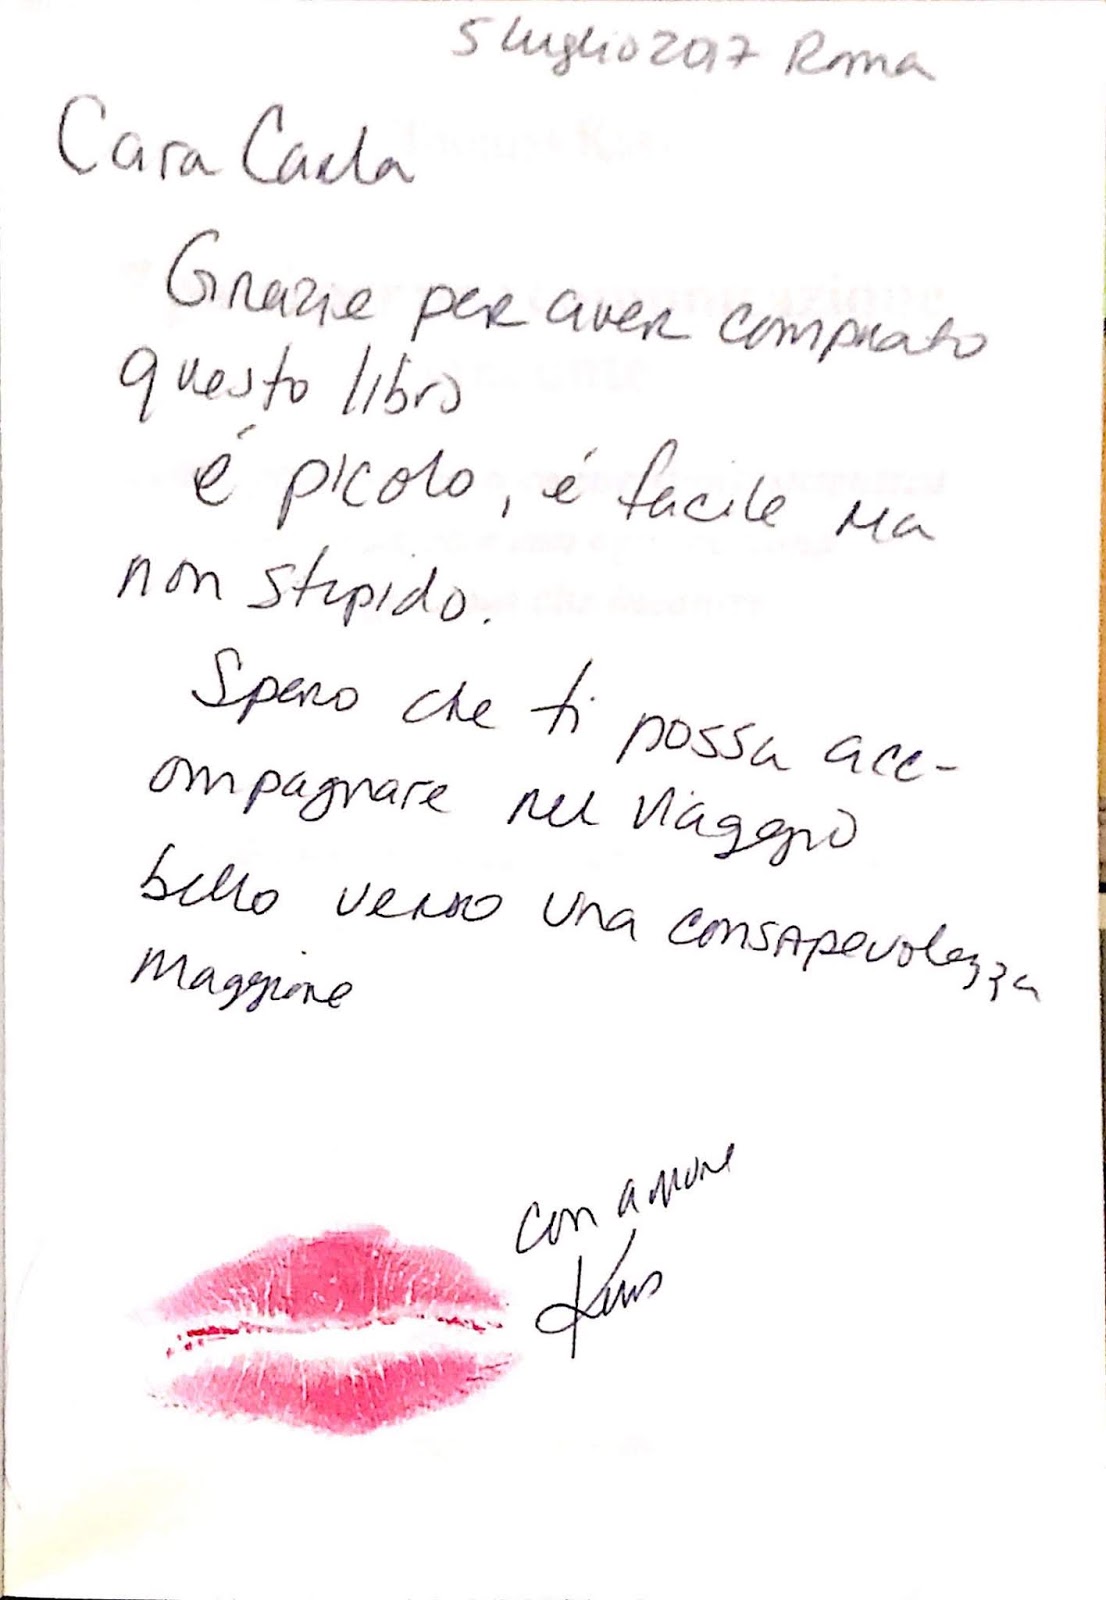 5 luglio 2017 Roma
Cara Carla
Grazie per aver comprato
questo libro
é picolo, é facile ma
non stupido.
Spero che ti possa acc-
ompagnare nel viaggio
bello verso una consapevolezza
maggiore
con amore